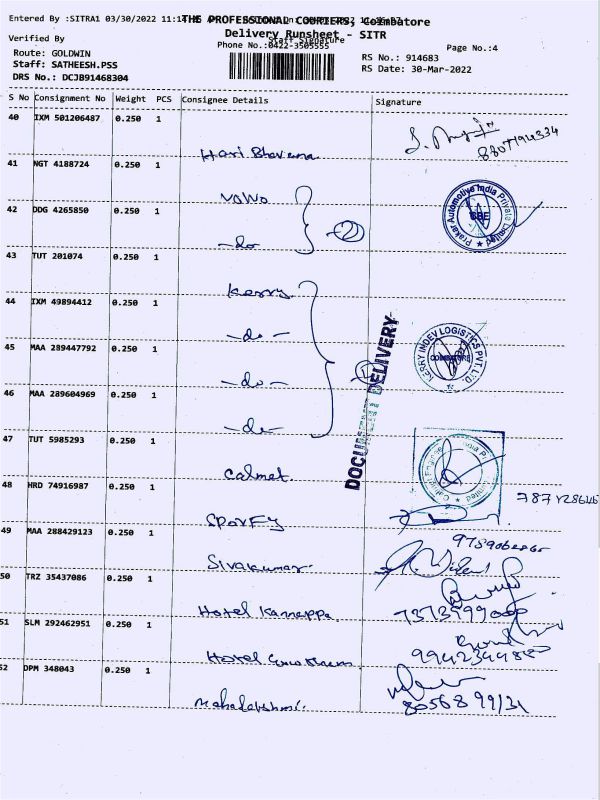 Entered By :SITRA1 03/30/2022 11:14
THE PROFESSIONAL COURIERS, Coimbatore
Delivery Runsheet - SITR
Verified By
Staff Signature
Phone No.:0422-3505555
Page No.:4
Route: GOLDWIN
Staff: SATHEESH.PSS
DRS No.: DCJB91468304
RS No.: 914683
RS Date: 30-Mar-2022
S No Consignment No Weight PCS Consignee Details Signature
40 IXM 501206487 0.250 1
Hari Bhavana
41 NGT 4188724 0.250 1
42 DDG 4265850 0.250 1
-do
2
Prakar Automotive India Private Limited
CBE
43 TUT 201074 0.250 1
Kerry
44 IXM 49894412 0.250 1
-do-
45 MAA 289447792 0.250 1
-do-
46 MAA 289604969 0.250 1
-do-
DOCUMENT DELIVERY
KERRY INDEV LOGISTICS PVT. LTD.
COIMBATORE
47 TUT 5985293 0.250 1
Calmet
48 HRD 74916987 0.250 1
Sporfy
49 MAA 288429123 0.250 1
Sivakumar.
50 TRZ 35437086 0.250 1
Hotel Kannappa
7373999000
51 SLM 292462951 0.250 1
Hotel
52 DPM 348043 0.250 1
Mahalakshmi.
8056899131